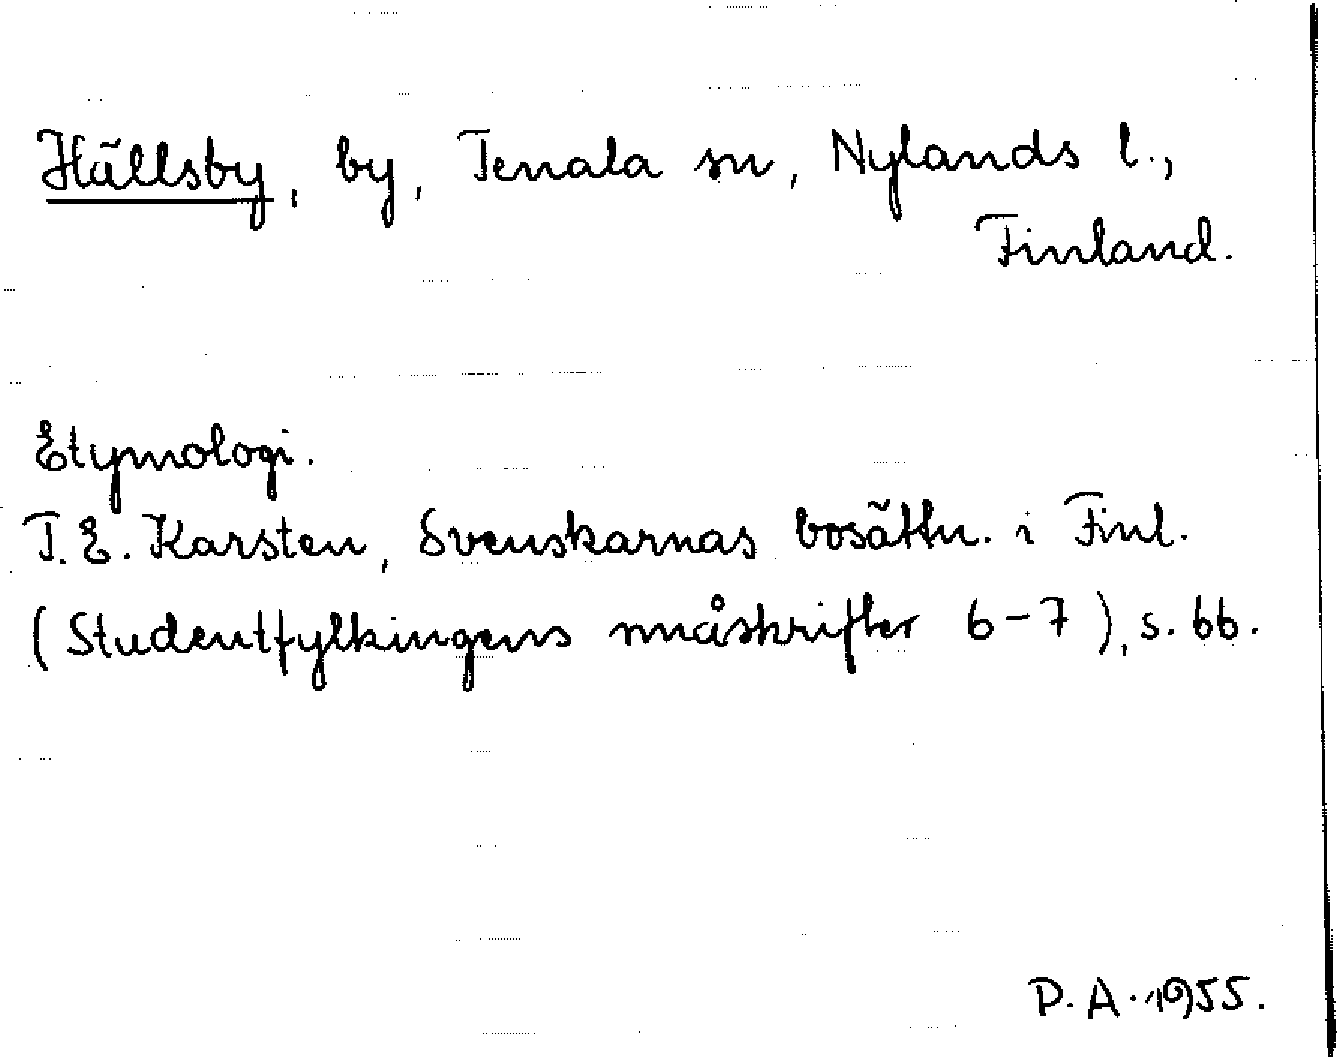 Hällsby, by, Tenala sn, Nylands l.,
Finland.
Etymologi.
T. E. Karsten, Svenskarnas bosättn. i Finl.
(Studentfylkingens småskrifter 6-7), s. 66.
P. A. 1955.